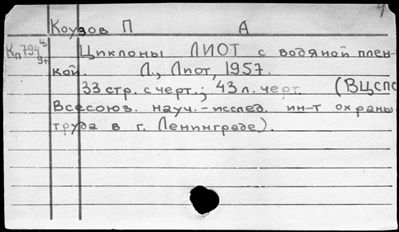 Коузов П А
Кп794 Циклоны ЛИОТ с водяной плен-
кой. Л., Лиот, 1957.
33 стр. с черт.; 43 л. черт. (ВЦСПС
Всесоюз. науч.-исслед. ин-т охраны
труда в г. Ленинграде).